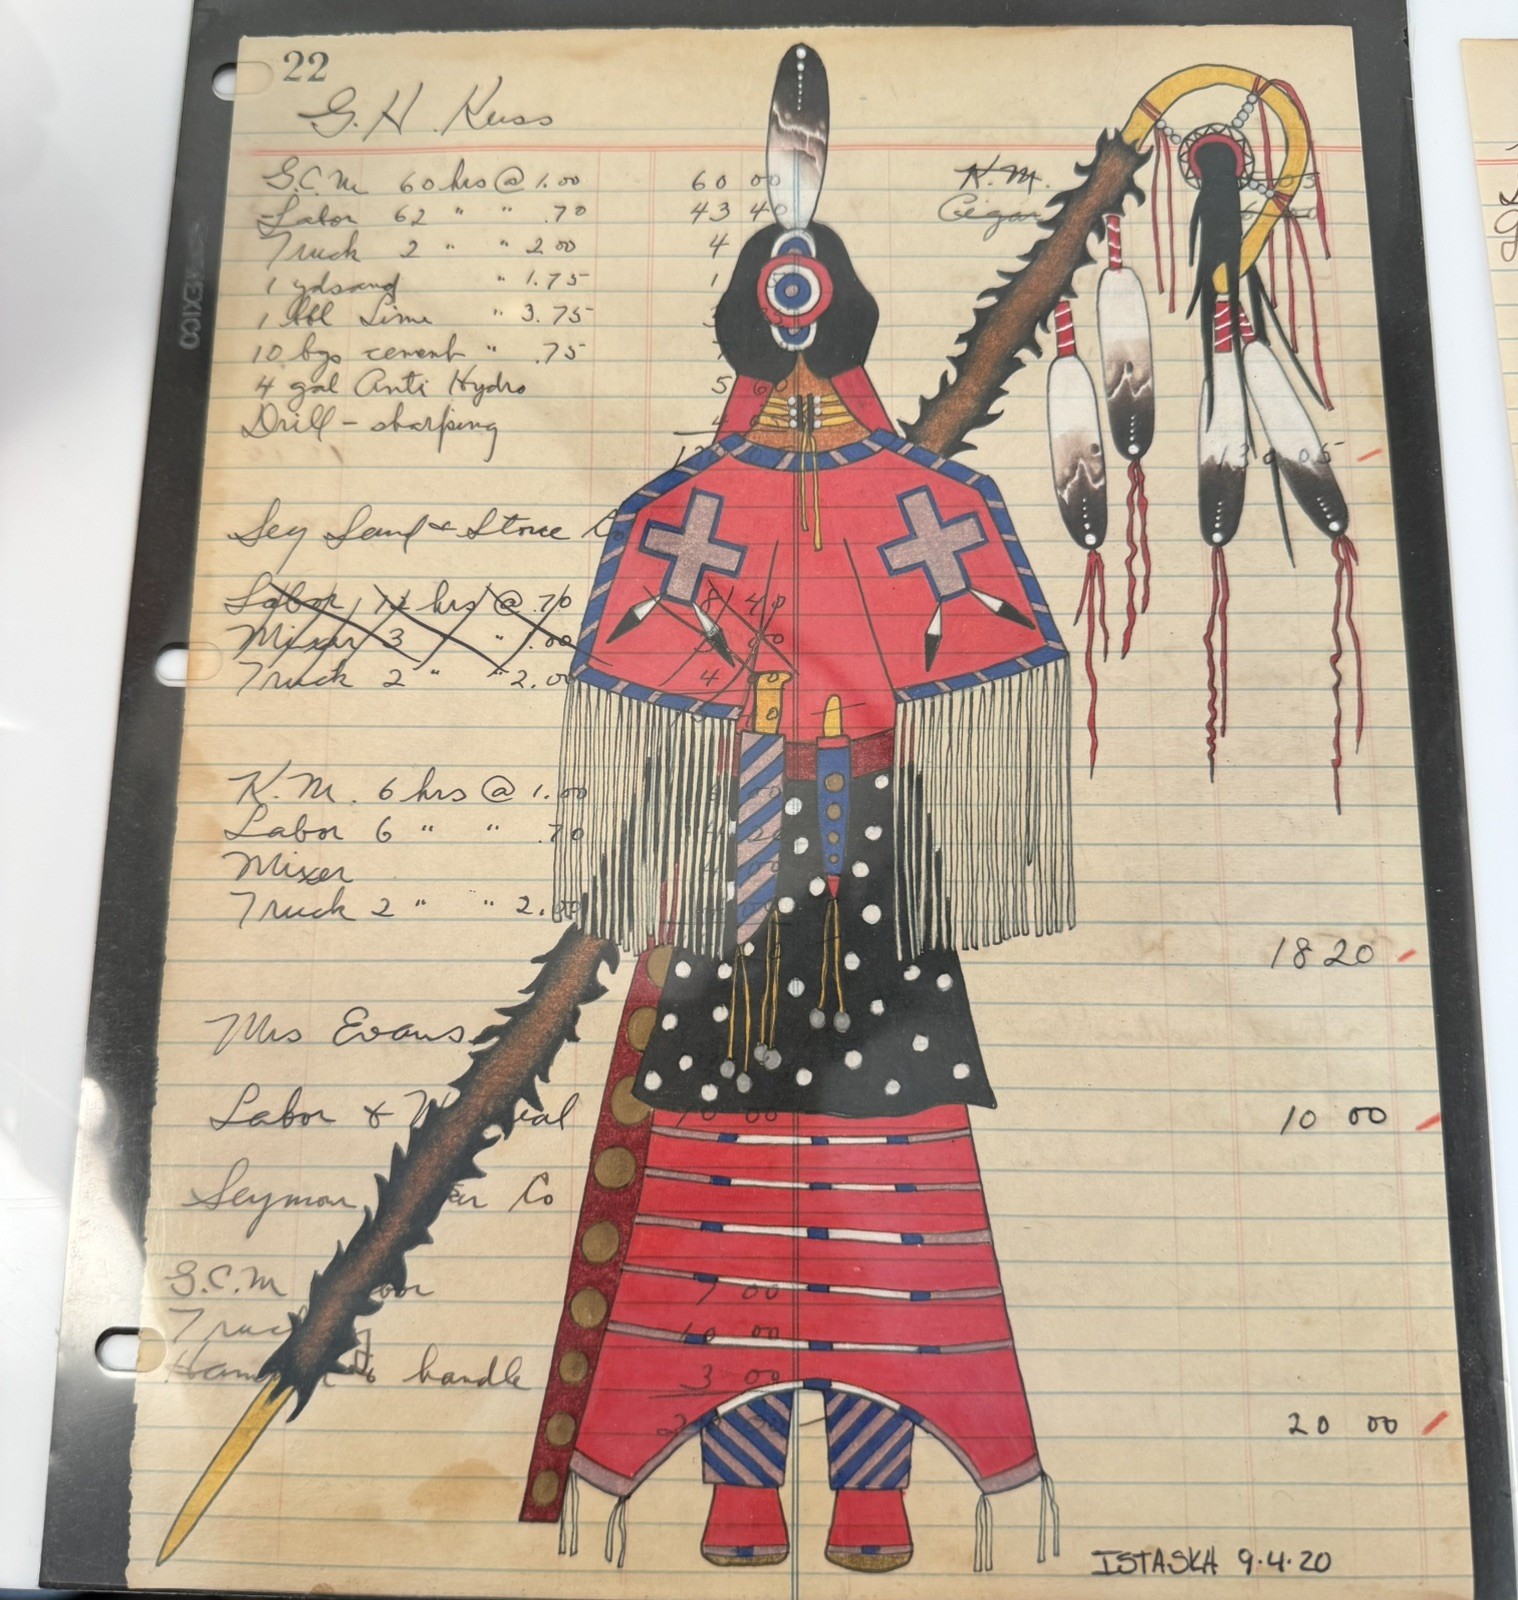 22
G. H. Kuss
G.C.M 60 hrs @ 1.00 60 00 K.M. 05
Labor 62 " " .70 43 40 Cigar
Truck 2 " " 2 00 4
1 yd sand " 1.75 1
1 bbl Lime " 3.75 3
10 bgs cement " .75
4 gal Anti Hydro 5 60
Drill - sharping 4
130 05
Sey Sand & Stone Co
Labor 12 hrs @ .70 8 40
Mixer 3 " 1.00
Truck 2 " " 2.00 4
K. M. 6 hrs @ 1.00
Labor 6 " " .70
Mixer
Truck 2 " " 2.00
18 20
Mrs Evans
Labor & 10 00 10 00
Seymour Co
G.C.M
Truck 7 00
10 00
handle 3 00
20 00
ISTASKA 9.4.20
MEXICO